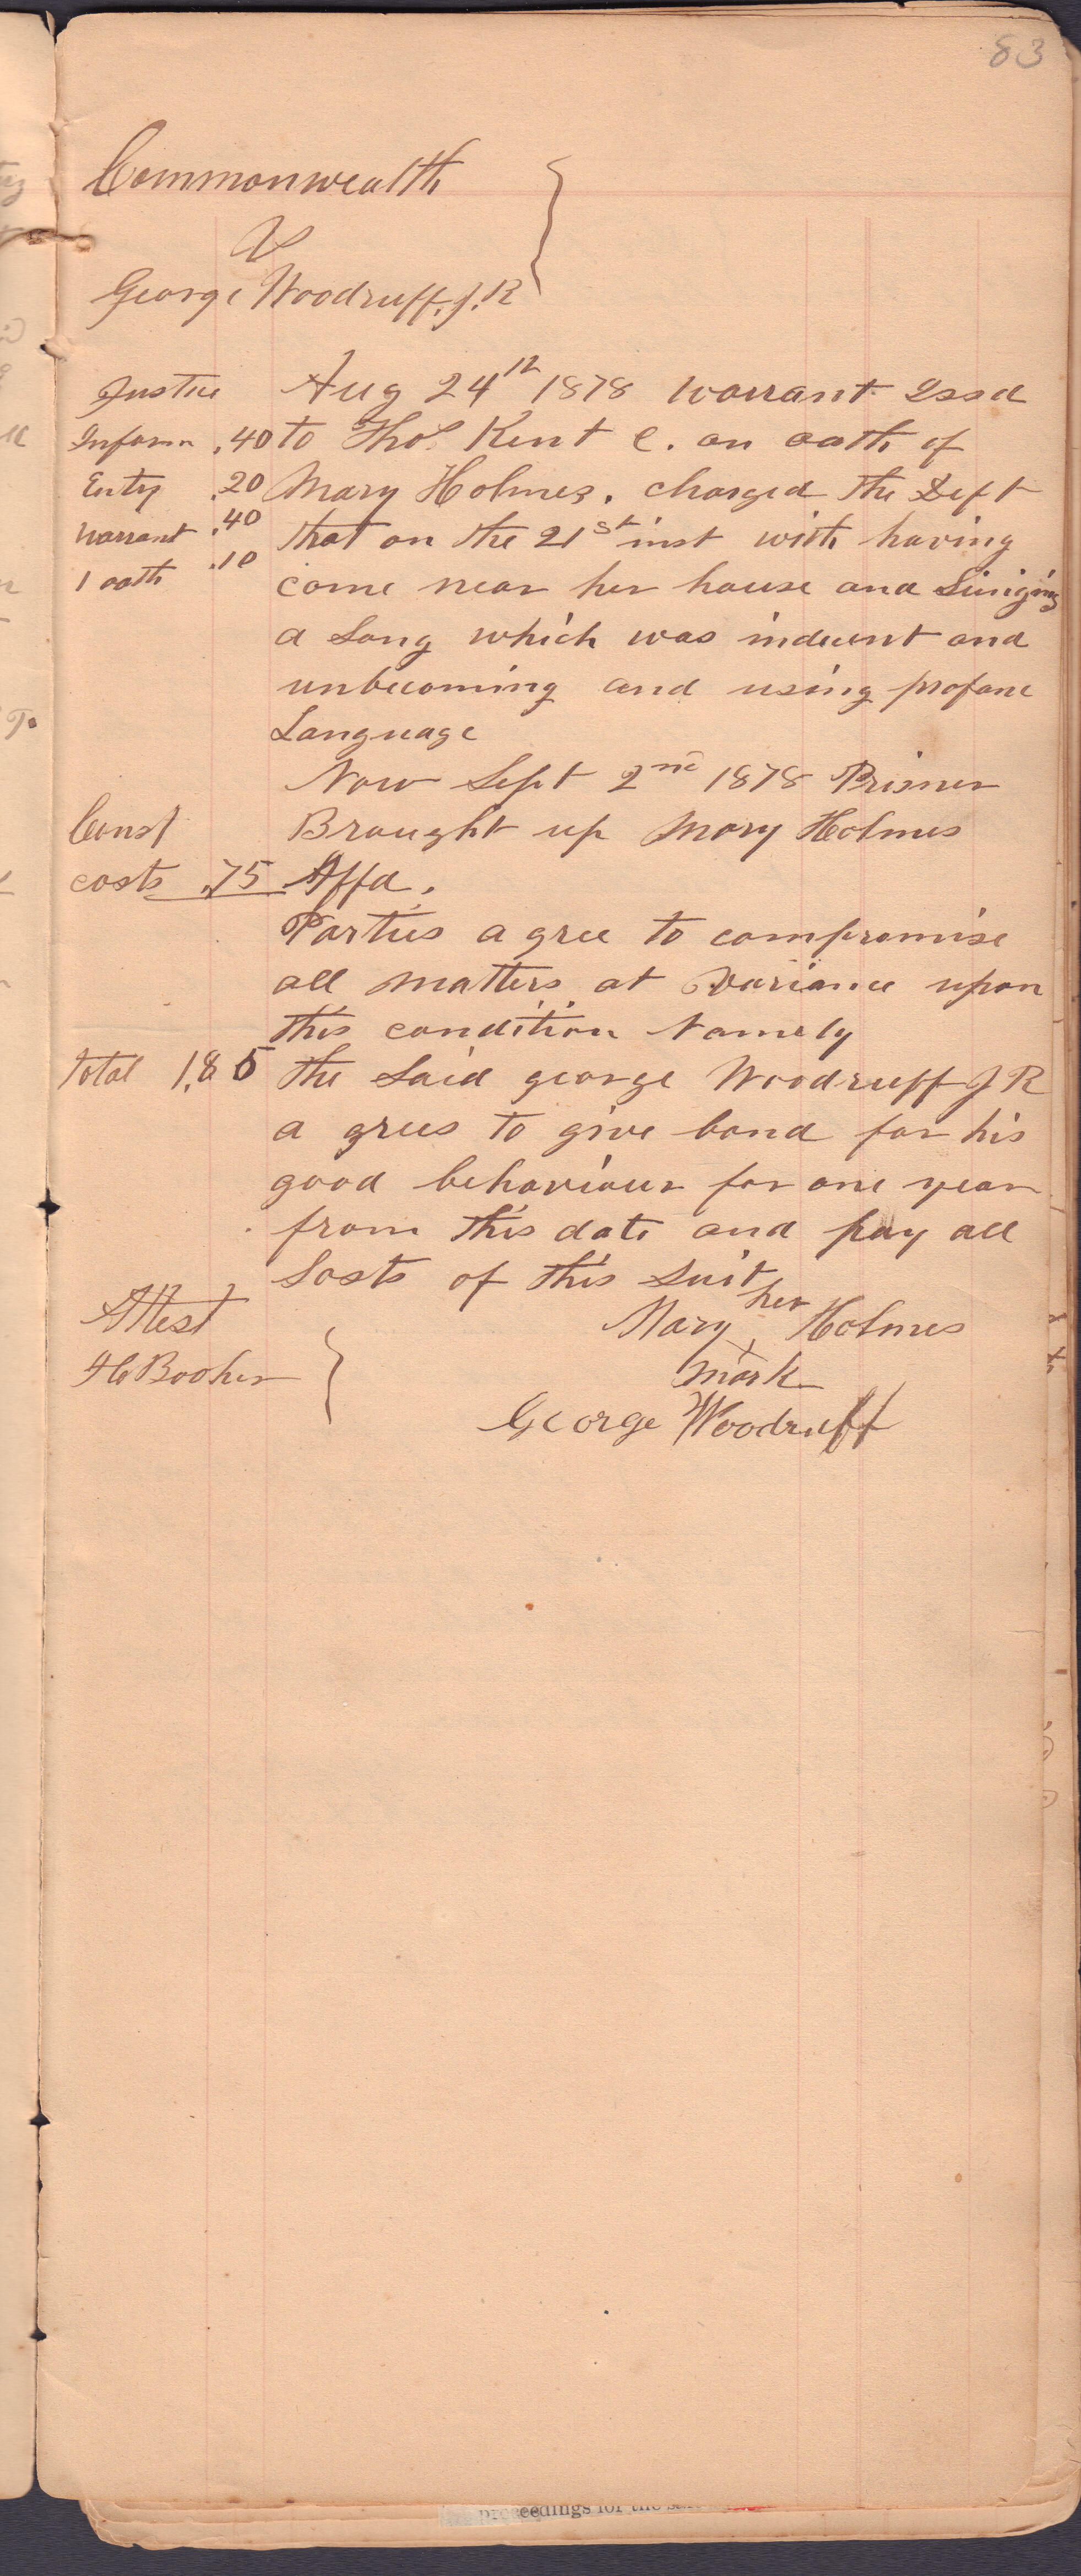 83
Commonwealth
V
George Woodruff. J. R
Justice Aug 24th 1878 warrant Issd
Inform .40 to Thos Kent C. on oath of
Enty .20 Mary Holmes. charged the Deft
warrant .40 that on the 21st inst with having
1 oath .10 come near her house and Singing
a Song which was indecent and
unbecoming and using profane
Language
Now Sept 2nd 1878 Prisner
Const Brought up Mary Holmes
costs .75 Affd.
Parties agree to compromise
all matters at variance upon
this condition Namely
total 1.85 the Said george Woodruff J R
a grees to give bond for his
good behaviour for one year
from this date and pay all
Costs of this Suit
Attest Mary her Holmes
H Booher X mark
George Woodruff
proceedings for the